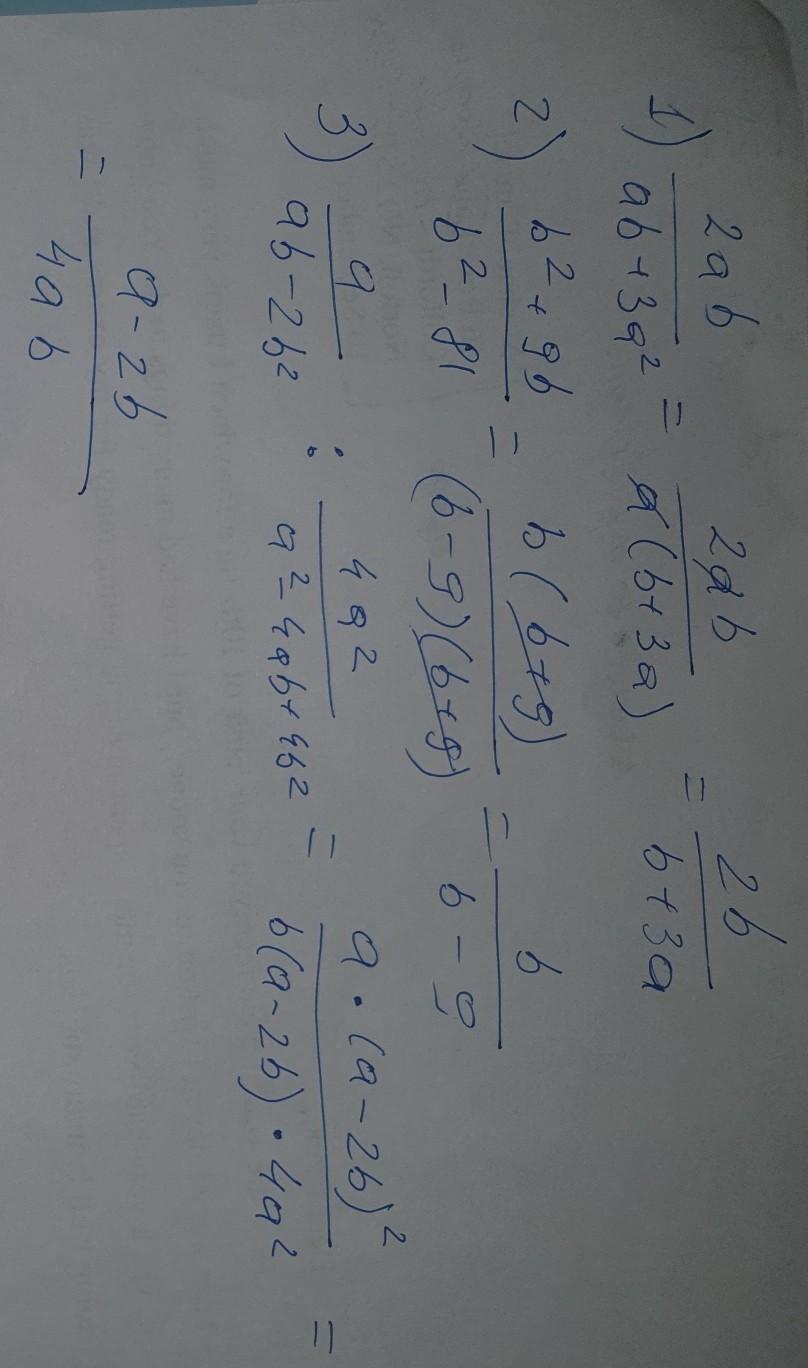 1) 2ab / (ab+3a²) = 2ab / (a(b+3a)) = 2b / (b+3a)
2) (b²+9b) / (b²-81) = b(b+9) / ((b-9)(b+9)) = b / (b-9)
3) a / (ab-2b²) : 4a² / (a²-4ab+4b²) = a·(a-2b)² / (b(a-2b)·4a²) =
= (a-2b) / (4ab)